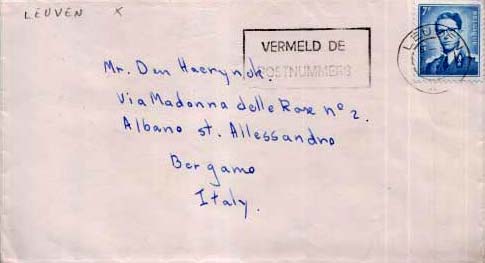 LEUVEN X
VERMELD DE
POSTNUMMERS
LEUV
7F
Mr. Den Haerynck.
via Madonna delle Rose nº 2.
Albano st. Allessandro
Bergamo
Italy.